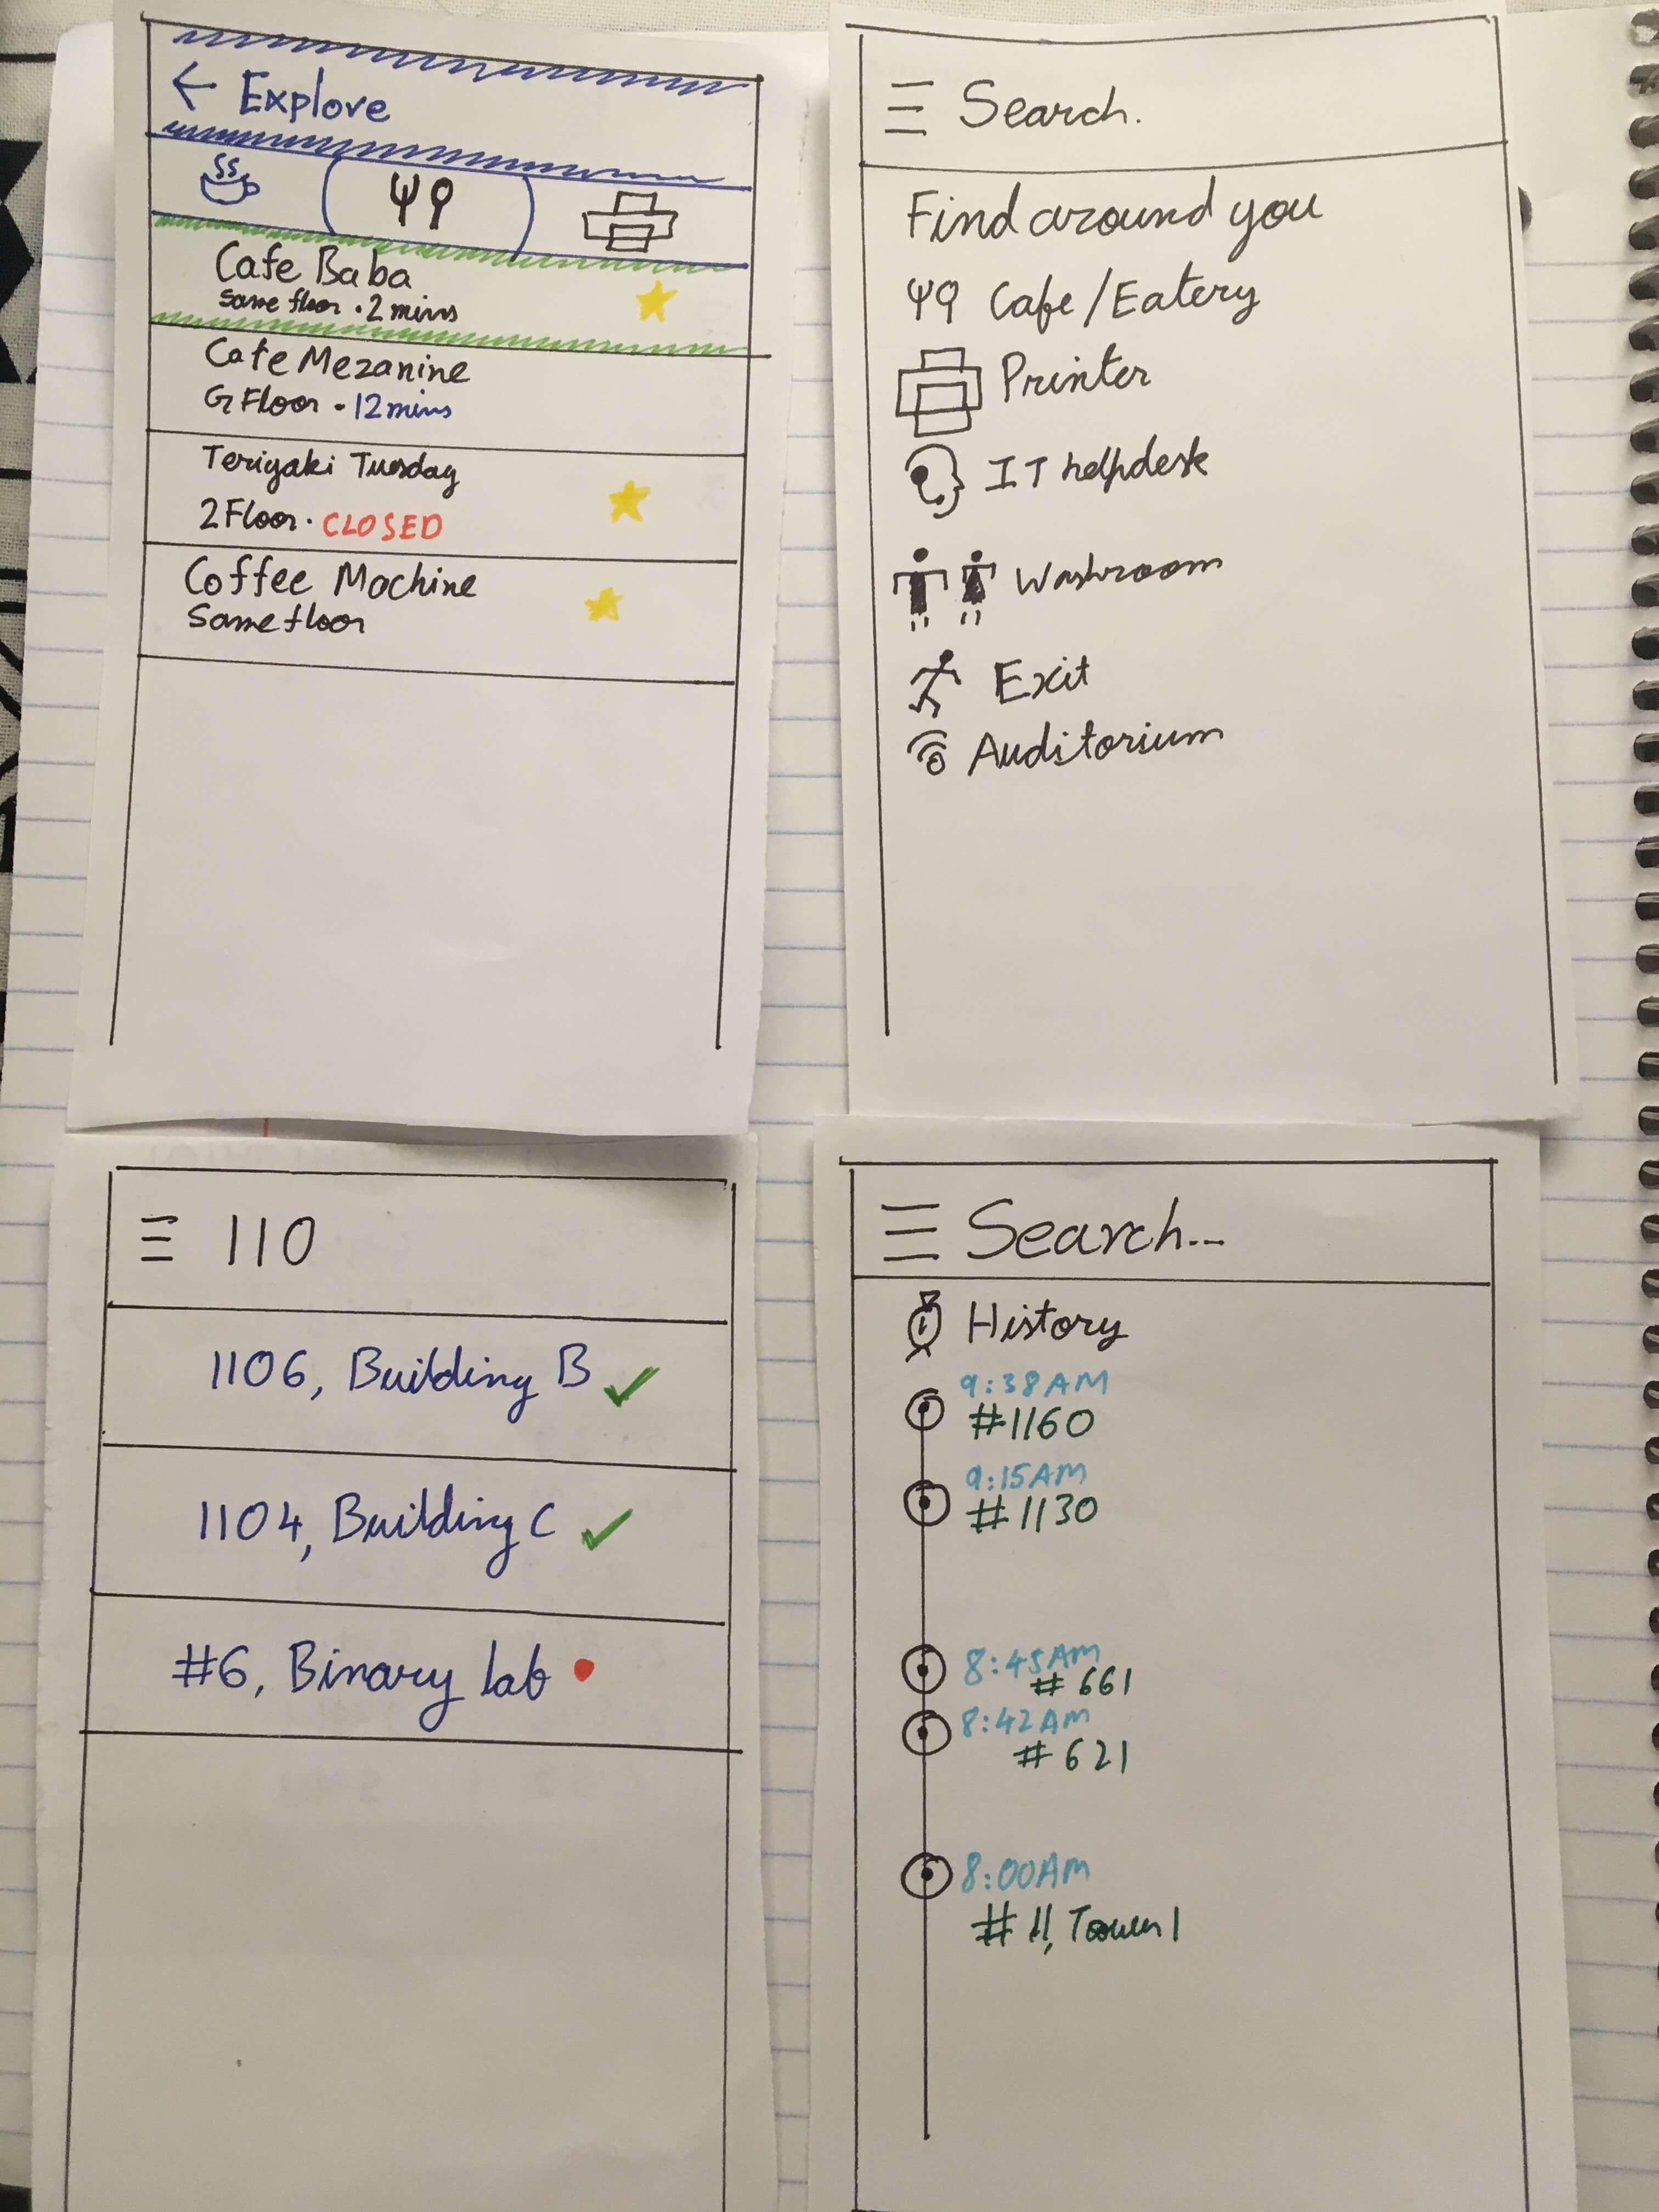 ← Explore
Cafe Baba
Same floor · 2 mins
Cafe Mezanine
G Floor - 12 mins
Teriyaki Tuesday
2 Floor · CLOSED
Coffee Machine
Same floor
Search.
Find around you
Cafe/Eatery
Printer
IT helpdesk
Washroom
Exit
Auditorium
110
1106, Building B ✓
1104, Building C ✓
#6, Binary lab
Search...
History
9:38AM
#1160
9:15AM
#1130
8:45AM
#661
8:42AM
#621
8:00AM
#11, Tower 1